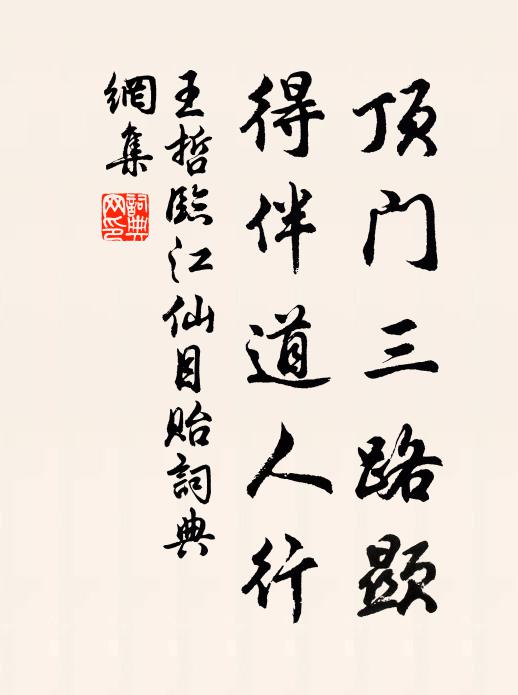 顶门三路显
得伴道人行
王哲臨江仙目貽詞典
網集
詞典
网印